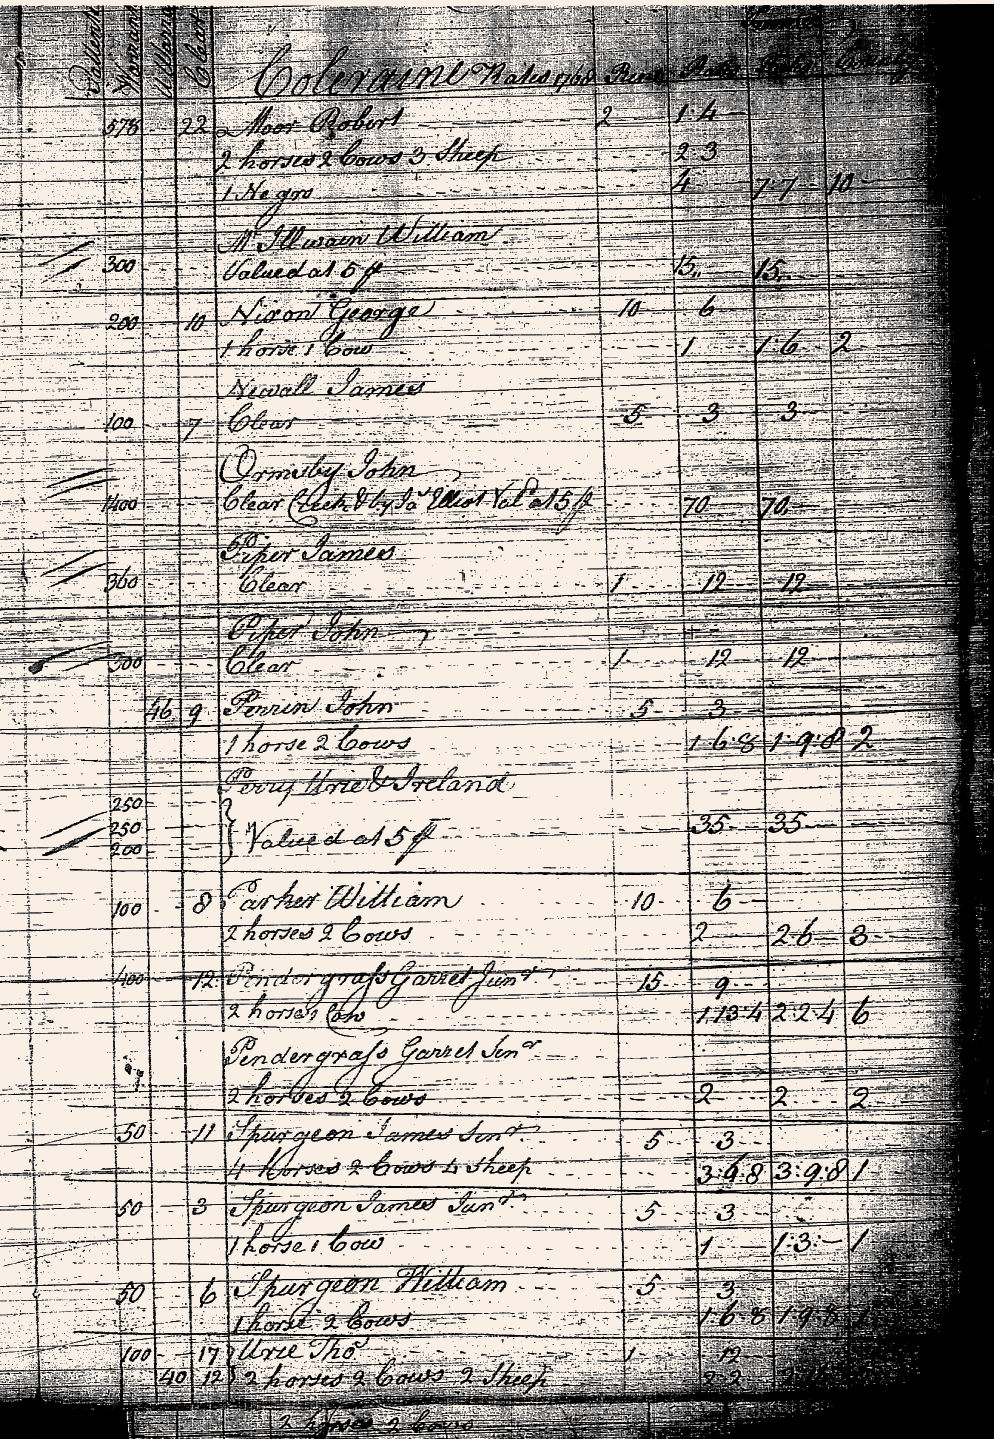 Patent Warrant Clear Coleraine Rates 1768 Rent Rate
578 22 Moor Robert 2 1·4
2 horses 2 Cows 3 Sheep 2 3
1 Negro 4 7·7 10
McIllwain William
300 Valued at 5 ₶ 15 15
200 10 Nixon George 10 6
1 horse 1 Cow 1 1·6 2
Newall James
100 7 Clear 5 3 3
Ormsby John
1400 Clear Creek & by Jas Elliot Vald at 5 ₶ 70 70
Piper James
360 Clear 1 12 12
Piper John
300 Clear 1 12 12
46 9 Perrin John 5 3
1 horse 2 Cows 1 6·8 1·9·8 2
Perry Urie & Ireland
250
250 Valued at 5 ₶ 35 35
200
100 8 Parker William 10 6
2 horses 2 Cows 2 2 6 3
400 12 Pendergrass Garret Junr 15 9
2 horses 1 Cow 1·13·4 2·2·4 6
Pendergrass Garret Senr
2 horses 2 Cows 2 2 2
50 11 Spurgeon James Senr 5 3
4 Horses 2 Cows 4 Sheep 3·6·8 3·9·8 1
50 3 Spurgeon James Junr 5 3
1 horse 1 Cow 1 1·3 1
50 6 Spurgeon William 5 3
1 horse 2 Cows 1·6·8 1·9·8 1
100 17 Urie Tho 1 12
40 12 2 horses 2 Cows 2 Sheep 2·2
2 horses 2 Cows